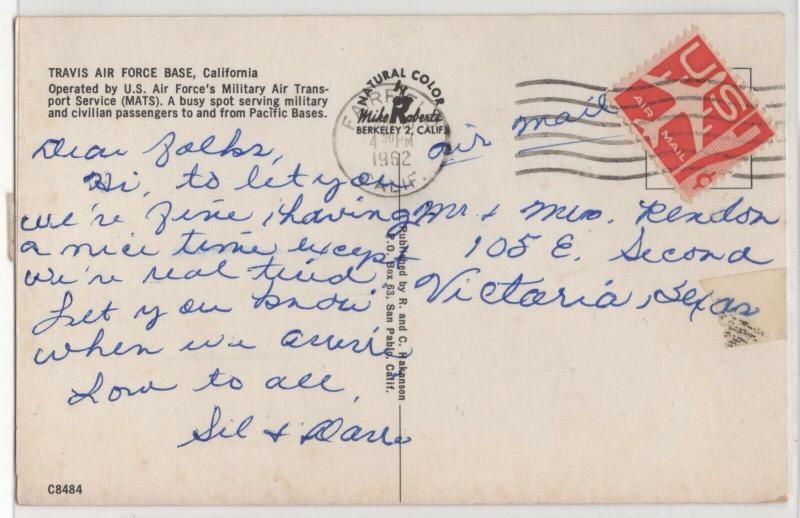 TRAVIS AIR FORCE BASE, California
Operated by U.S. Air Force's Military Air Trans-
port Service (MATS). A busy spot serving military
and civilian passengers to and from Pacific Bases.
NATURAL COLOR
by
Mike Roberts
BERKELEY 2, CALIF.
4 PM
1962
CALIF.
U.S.
AIR MAIL
7¢
air mail
Dear Folks,
Hi, to let you
we're fine, having
a nice time except
we're real tired,
Let you know
when we
Love to all,
Sil &
Mr. & Mrs. Rendon
105 E. Second
Victoria, Texas
Published by R. and C. Hakanson
P.O. Box 63, San Pablo, Calif.
C8484